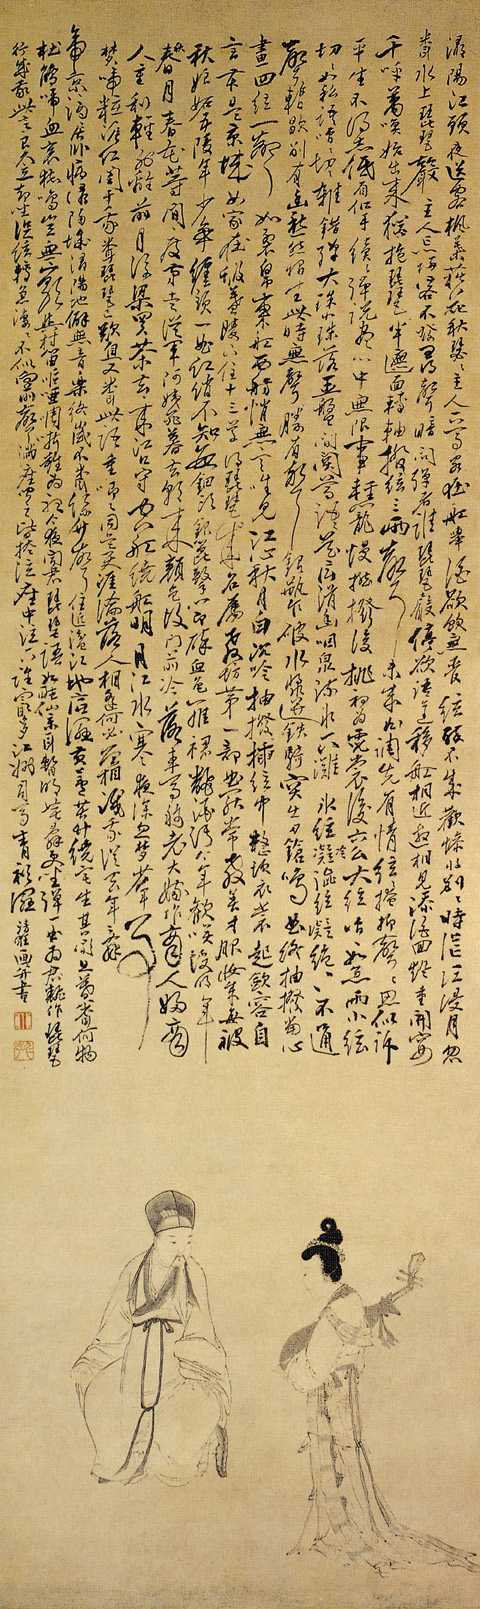 潯陽江頭夜送客楓葉荻花秋瑟〻主人下馬客在船舉酒欲飲無管絃醉不成歡慘將別〻時茫〻江浸月忽
聞水上琵琶聲主人忘歸客不發尋聲暗問彈者誰琵琶聲停欲語遲移船相近邀相見添酒回燈重開宴
千呼萬喚始出來猶抱琵琶半遮面轉軸撥絃三兩聲未成曲調先有情絃〻掩抑聲〻思似訴
平生不得志低眉信手續〻彈說盡心中無限事輕攏慢撚撥復挑初為霓裳後六么大絃嘈〻如急雨小絃
切〻如私語嘈〻切〻雜錯彈大珠小珠落玉盤間關鶯語花底滑幽咽泉流水下灘水絃冷澀絃凝絕〻不通
聲暫歇別有幽愁暗恨生此時無聲勝有聲銀瓶乍破水漿迸鐵騎突出刀鎗鳴曲終抽撥當心
畫四絃一聲如裂帛東船西舫悄無言唯見江心秋月白沉吟抽撥插絃中整頓衣裳起斂容自
言本是京城女家在蝦蟆陵下住十三學得琵琶成名屬教坊第一部曲罷常教善才服妝成每被
秋娘妬五陵年少爭纏頭一曲紅綃不知數鈿頭銀篦擊節碎血色羅裙翻酒污今年歡笑復明年
秋月春風等閒度弟走從軍阿姨死暮去朝來顏色故門前冷落車馬稀老大嫁作商人婦商
人重利輕別離前月浮梁買茶去去來江口守空船繞船明月江水寒夜深忽夢少年事
夢啼粧淚紅闌干我聞琵琶已歎息又聞此語重唧〻同是天涯淪落人相逢何必曾相識我從去年辭
帝京謫居臥病潯陽城潯陽地僻無音樂終歲不聞絲竹聲住近湓江地低濕黃蘆苦竹繞宅生其間旦暮聞何物
杜鵑啼血哀猿鳴豈無山歌與村笛嘔啞嘲哳難為聽今夜聞君琵琶語如聽仙樂耳暫明莫辭更坐彈一曲為君翻作琵琶
行感我此言良久立却坐促絃〻轉急淒〻不似向前聲滿座聞之皆掩泣座中泣下誰最多江州司馬青衫濕 清狂畫并書